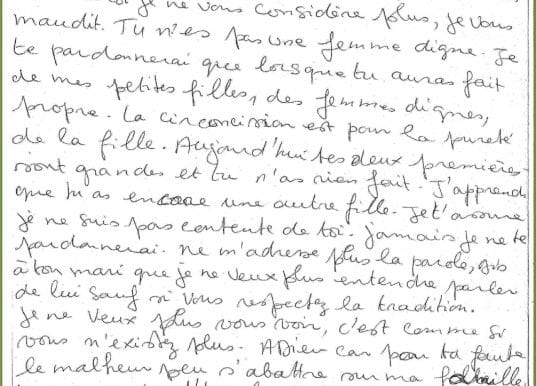 je ne vous considère plus, je vous
maudit. Tu n'es pas une femme digne. Je
te pardonnerai que lorsque tu auras fait
de mes petites filles, des femmes dignes,
propre. La circoncision est pour la pureté
de la fille. Aujourd'hui tes deux premières
sont grandes et tu n'as rien fait. J'apprend
que tu as encore une autre fille. Je t'assure
je ne suis pas contente de toi. jamais je ne te
pardonnerai. ne m'adresse plus la parole, dis
à ton mari que je ne veux plus entendre parler
de lui sauf si vous respectez la tradition.
Je ne veux plus vous voir, c'est comme si
vous n'existez plus. ADieu car pour ta faute
le malheur peu s'abattre sur ma